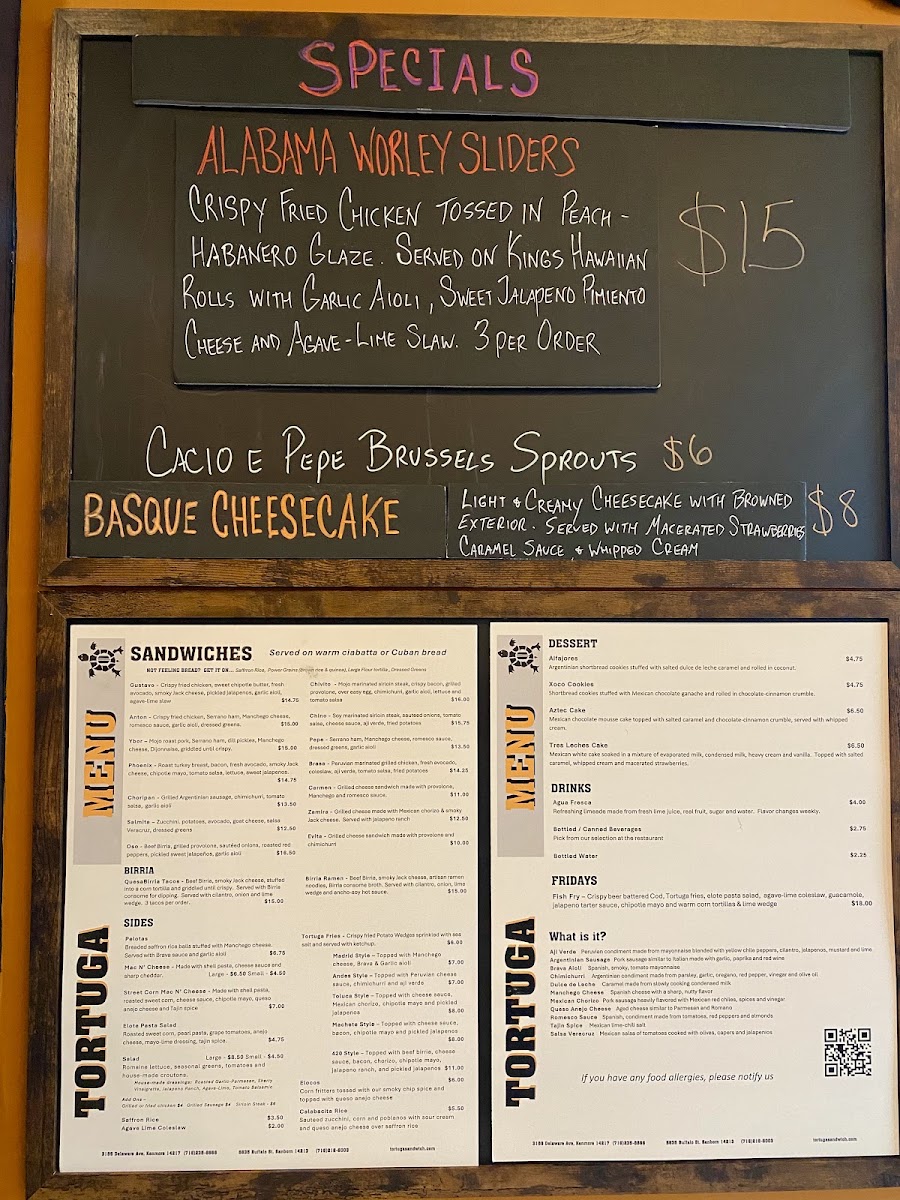 SPECIALS
ALABAMA WORLEY SLIDERS
CRISPY FRIED CHICKEN TOSSED IN PEACH-
HABANERO GLAZE. SERVED ON KINGS HAWAIIAN
ROLLS WITH GARLIC AIOLI, SWEET JALAPENO PIMIENTO
CHEESE AND AGAVE-LIME SLAW. 3 PER ORDER
$15
CACIO E PEPE BRUSSELS SPROUTS $6
BASQUE CHEESECAKE
LIGHT & CREAMY CHEESECAKE WITH BROWNED
EXTERIOR. SERVED WITH MACERATED STRAWBERRIES
CARAMEL SAUCE & WHIPPED CREAM
$8
MENU
TORTUGA
SANDWICHES Served on warm ciabatta or Cuban bread
NOT FEELING BREAD? GET IT ON... Saffron Rice, Power Grains (Brown rice & quinoa), Large Flour tortilla, Dressed Greens
Gustavo - Crispy fried chicken, sweet chipotle butter, fresh
avocado, smoky Jack cheese, pickled jalapenos, garlic aioli,
agave-lime slaw $14.75
Anton - Crispy fried chicken, Serrano ham, Manchego cheese,
romesco sauce, garlic aioli, dressed greens. $15.00
Ybor - Mojo roast pork, Serrano ham, dill pickles, Manchego
cheese, Dijonnaise, griddled until crispy. $15.00
Phoenix - Roast turkey breast, bacon, fresh avocado, smoky Jack
cheese, chipotle mayo, tomato salsa, lettuce, sweet jalapenos.
$14.75
Choripan - Grilled Argentinian sausage, chimichurri, tomato
salsa, garlic aioli $13.50
Salmita - Zucchini, potatoes, avocado, goat cheese, salsa
Veracruz, dressed greens $12.50
Oso - Beef Birria, grilled provolone, sautéed onions, roasted red
peppers, pickled sweet jalapeños, garlic aioli $16.50
Chivito - Mojo marinated sirloin steak, crispy bacon, grilled
provolone, over easy egg, chimichurri, garlic aioli, lettuce and
tomato salsa $16.00
Chino - Soy marinated sirloin steak, sauteed onions, tomato
salsa, cheese sauce, aji verde, fried potatoes $15.75
Pepe - Serrano ham, Manchego cheese, romesco sauce,
dressed greens, garlic aioli $13.50
Brasa - Peruvian marinated grilled chicken, fresh avocado,
coleslaw, aji verde, tomato salsa, fried potatoes $14.25
Carmen - Grilled cheese sandwich made with provolone,
Manchego and romesco sauce. $11.00
Zamira - Grilled cheese made with Mexican chorizo & smoky
Jack cheese. Served with jalapeno ranch $12.50
Evita - Grilled cheese sandwich made with provolone and
chimichurri $10.00
BIRRIA
QuesaBirria Tacos - Beef Birria, smoky Jack cheese, stuffed
into a corn tortilla and griddled until crispy. Served with Birria
consome for dipping. Served with cilantro, onion and lime
wedge. 3 tacos per order. $15.00
Birria Ramen - Beef Birria, smoky Jack cheese, artisan ramen
noodles, Birria consome broth. Served with cilantro, onion, lime
wedge and ancho-soy hot sauce. $15.00
SIDES
Pelotas
Breaded saffron rice balls stuffed with Manchego cheese.
Served with Brava sauce and garlic aioli $6.75
Mac N' Cheese - Made with shell pasta, cheese sauce and
sharp cheddar. Large - $6.50 Small - $4.50
Street Corn Mac N' Cheese - Made with shell pasta,
roasted sweet corn, cheese sauce, chipotle mayo, queso
anejo cheese and Tajin spice $7.00
Elote Pasta Salad
Roasted sweet corn, pearl pasta, grape tomatoes, anejo
cheese, mayo-lime dressing, tajin spice. $4.75
Salad Large - $8.50 Small - $4.50
Romaine lettuce, seasonal greens, tomatoes and
house-made croutons.
House-made dressings: Roasted Garlic-Parmesan, Sherry
Vinaigrette, Jalapeno Ranch, Agave-Lime, Tomato Balsamic
Add Ons -
Grilled or fried chicken $4 Grilled Sausage $4 Sirloin Steak - $5
Saffron Rice $3.50
Agave Lime Coleslaw $2.00
Tortuga Fries - Crispy fried Potato Wedges sprinkled with sea
salt and served with ketchup. $6.00
Madrid Style - Topped with Manchego
cheese, Brava & Garlic aioli $7.00
Andes Style - Topped with Peruvian cheese
sauce, chimichurri and aji verde $7.00
Toluca Style - Topped with cheese sauce,
Mexican chorizo, chipotle mayo and pickled
jalapenos $8.00
Machete Style - Topped with cheese sauce,
bacon, chipotle mayo and pickled jalapenos
$8.00
420 Style - Topped with beef birria, cheese
sauce, bacon, chorizo, chipotle mayo,
jalapeno ranch, and pickled jalapenos $11.00
Elocos $6.00
Corn fritters tossed with our smoky chip spice and
topped with queso anejo cheese
Calabacita Rice $5.50
Sauteed zucchini, corn and poblanos with sour cream
and queso anejo cheese over saffron rice
3185 Delaware Ave, Kenmore 14217
tortugasandwich.com
MENU
TORTUGA
DESSERT
Alfajores $4.75
Argentinian shortbread cookies stuffed with salted dulce de leche caramel and rolled in coconut.
Xoco Cookies $4.75
Shortbread cookies stuffed with Mexican chocolate ganache and rolled in chocolate-cinnamon crumble.
Aztec Cake $6.50
Mexican chocolate mousse cake topped with salted caramel and chocolate-cinnamon crumble, served with whipped
cream.
Tres Leches Cake $6.50
Mexican white cake soaked in a mixture of evaporated milk, condensed milk, heavy cream and vanilla. Topped with salted
caramel, whipped cream and macerated strawberries.
DRINKS
Agua Fresca $4.00
Refreshing limeade made from fresh lime juice, real fruit, sugar and water. Flavor changes weekly.
Bottled / Canned Beverages $2.75
Pick from our selection at the restaurant
Bottled Water $2.25
FRIDAYS
Fish Fry - Crispy beer battered Cod, Tortuga fries, elote pasta salad, agave-lime coleslaw, guacamole,
jalapeno tarter sauce, chipotle mayo and warm corn tortillas & lime wedge $18.00
What is it?
Aji Verde Peruvian condiment made from mayonnaise blended with yellow chile peppers, cilantro, jalapenos, mustard and lime
Argentinian Sausage Pork sausage similar to Italian made with garlic, paprika and red wine
Brava Aioli Spanish, smoky, tomato mayonnaise
Chimichurri Argentinian condiment made from parsley, garlic, oregano, red pepper, vinegar and olive oil
Dulce de Leche Caramel made from slowly cooking condensed milk
Manchego Cheese Spanish cheese with a sharp, nutty flavor
Mexican Chorizo Pork sausage heavily flavored with Mexican red chiles, spices and vinegar
Queso Anejo Cheese Aged cheese similar to Parmesan and Romano
Romesco Sauce Spanish, condiment made from tomatoes, red peppers and almonds
Tajin Spice Mexican lime-chili salt
Salsa Veracruz Mexican salsa of tomatoes cooked with olives, capers and jalapenos
if you have any food allergies, please notify us
3185 Delaware Ave, Kenmore 14217
tortugasandwich.com